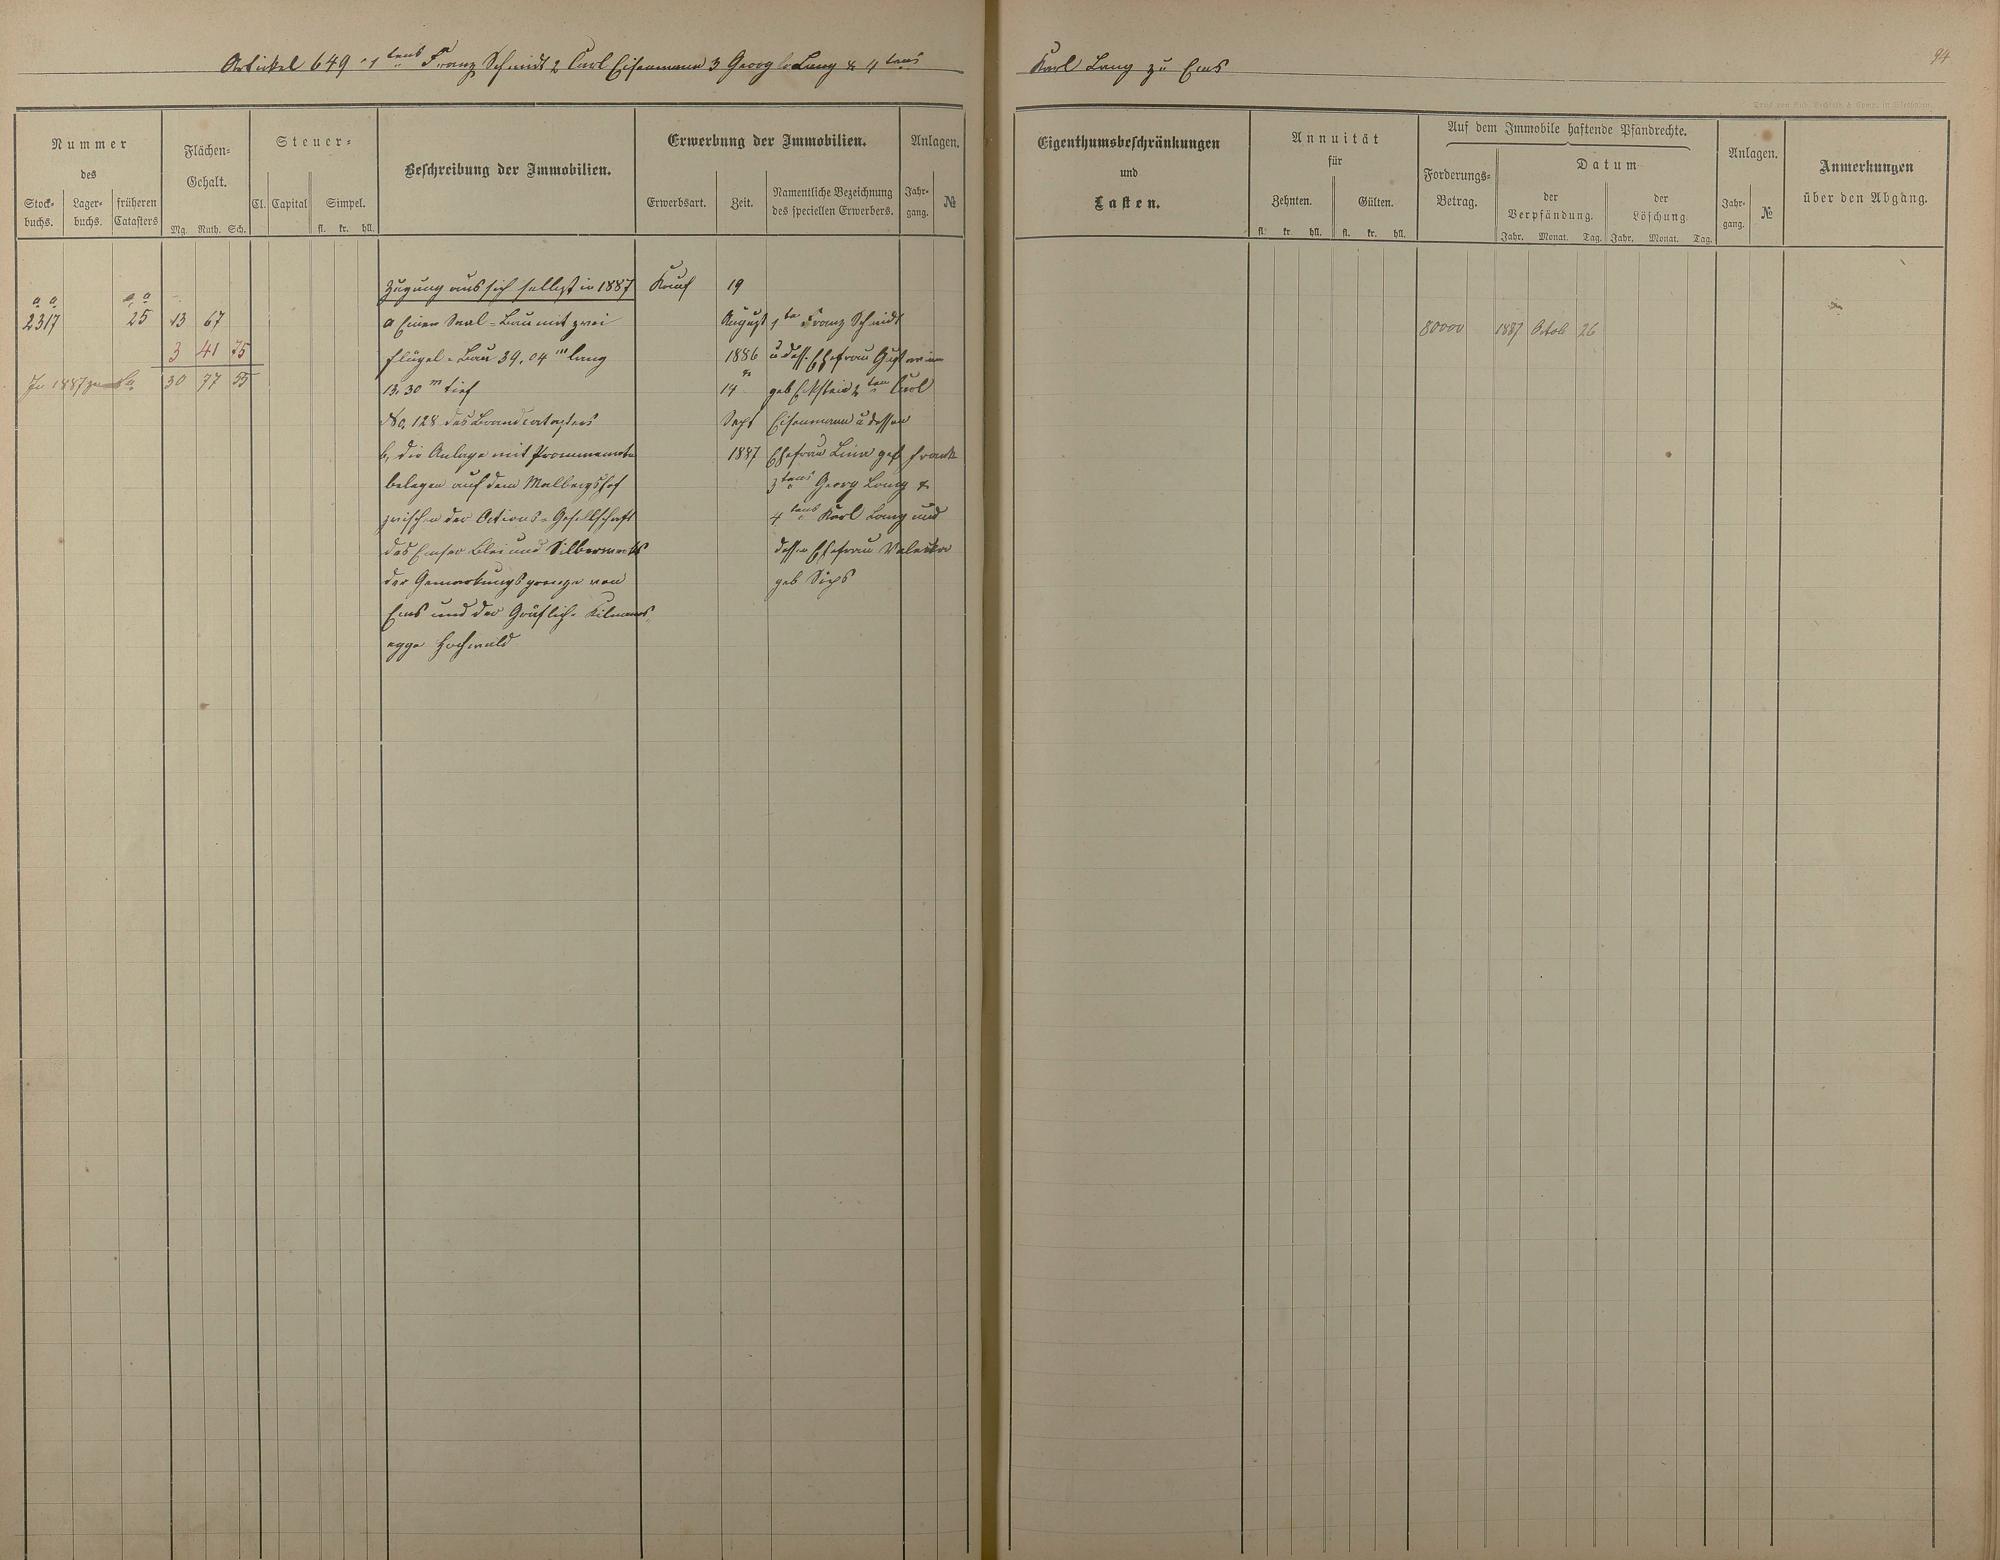 Artickel 649 1tens Franz Schmidt 2 Carl Eisenmann 3 Georg Lang & 4tens Karl Lang zu Ems
94
Nummer
des
Stock-
buchs.
Lager-
buchs.
früheren
Catasters
Flächen-
Gehalt.
Mg. Ruth. Sch.
Steuer-
Cl. Capital Simpel.
fl. kr. hll.
Beschreibung der Immobilien.
Erwerbung der Immobilien.
Erwerbsart. Zeit.
Namentliche Bezeichnung
des speciellen Erwerbers.
Anlagen.
Jahr-
gang.
№
Eigenthumsbeschränkungen
und
Lasten.
Annuität
für
Zehnten. Gülten.
fl. kr. hll. fl. kr. hll.
Auf dem Immobile haftende Pfandrechte.
Forderungs-
Betrag.
Datum
der
Verpfändung.
der
Löschung.
Jahr. Monat. Tag. Jahr. Monat. Tag.
Anlagen.
Jahr-
gang.
№
Anmerkungen
über den Abgang.
Zugang aus sich selbst in 1887
a a
2317
a a
25
13 67
3 41 75
In 1887
30 77 55
a Einen Saal-Bau mit zwei
Flügel-Bau 39,04 m lang
13,30 m tief
No. 128 des Brandcatasters
b, die Anlage mit Prommenade
belegen auf dem Malbergshof
zwischen der Actions-Gesellschaft
des Emser Blei und Silberwerks
der Gemarkungsgrenze von
Ems und der Gräflich Kilmans,
egge Hochwald
Kauf
19
August
1886
14
Sept
1887
1te Franz Schmidt
u dess. Ehefrau
geb Eckstein 2ten Carl
Eisenmann u dessen
Ehefrau Lina geb Frank
3tens Georg Lang &
4tens Karl Lang und
dessen Ehefrau Valeska
geb Sips
80000 1887 Octob 26